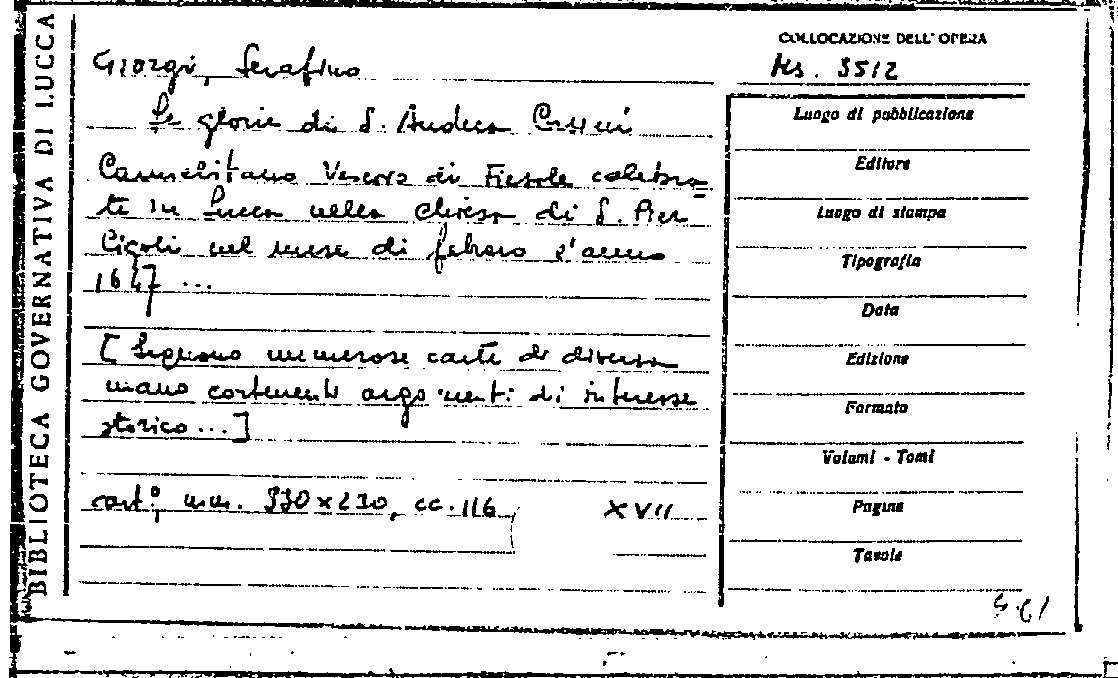 BIBLIOTECA GOVERNATIVA DI LUCCA
Giorgi, Serafino
Le glorie di S. Andrea Corsini
Carmelitano Vescovo di Fiesole celebra=
te in Lucca nella chiesa di S. Pier
Cigoli nel mese di febraro l'anno
1647 ...
[Seguono numerose carte di diversa
mano contenenti argomenti di interesse
storico...]
cart., mm. 330x230, cc. 116 XVII
COLLOCAZIONE DELL'OPERA
Ms. 3512
Luogo di pubblicazione
Editore
Luogo di stampa
Tipografia
Data
Edizione
Formato
Volumi - Tomi
Pagine
Tavole